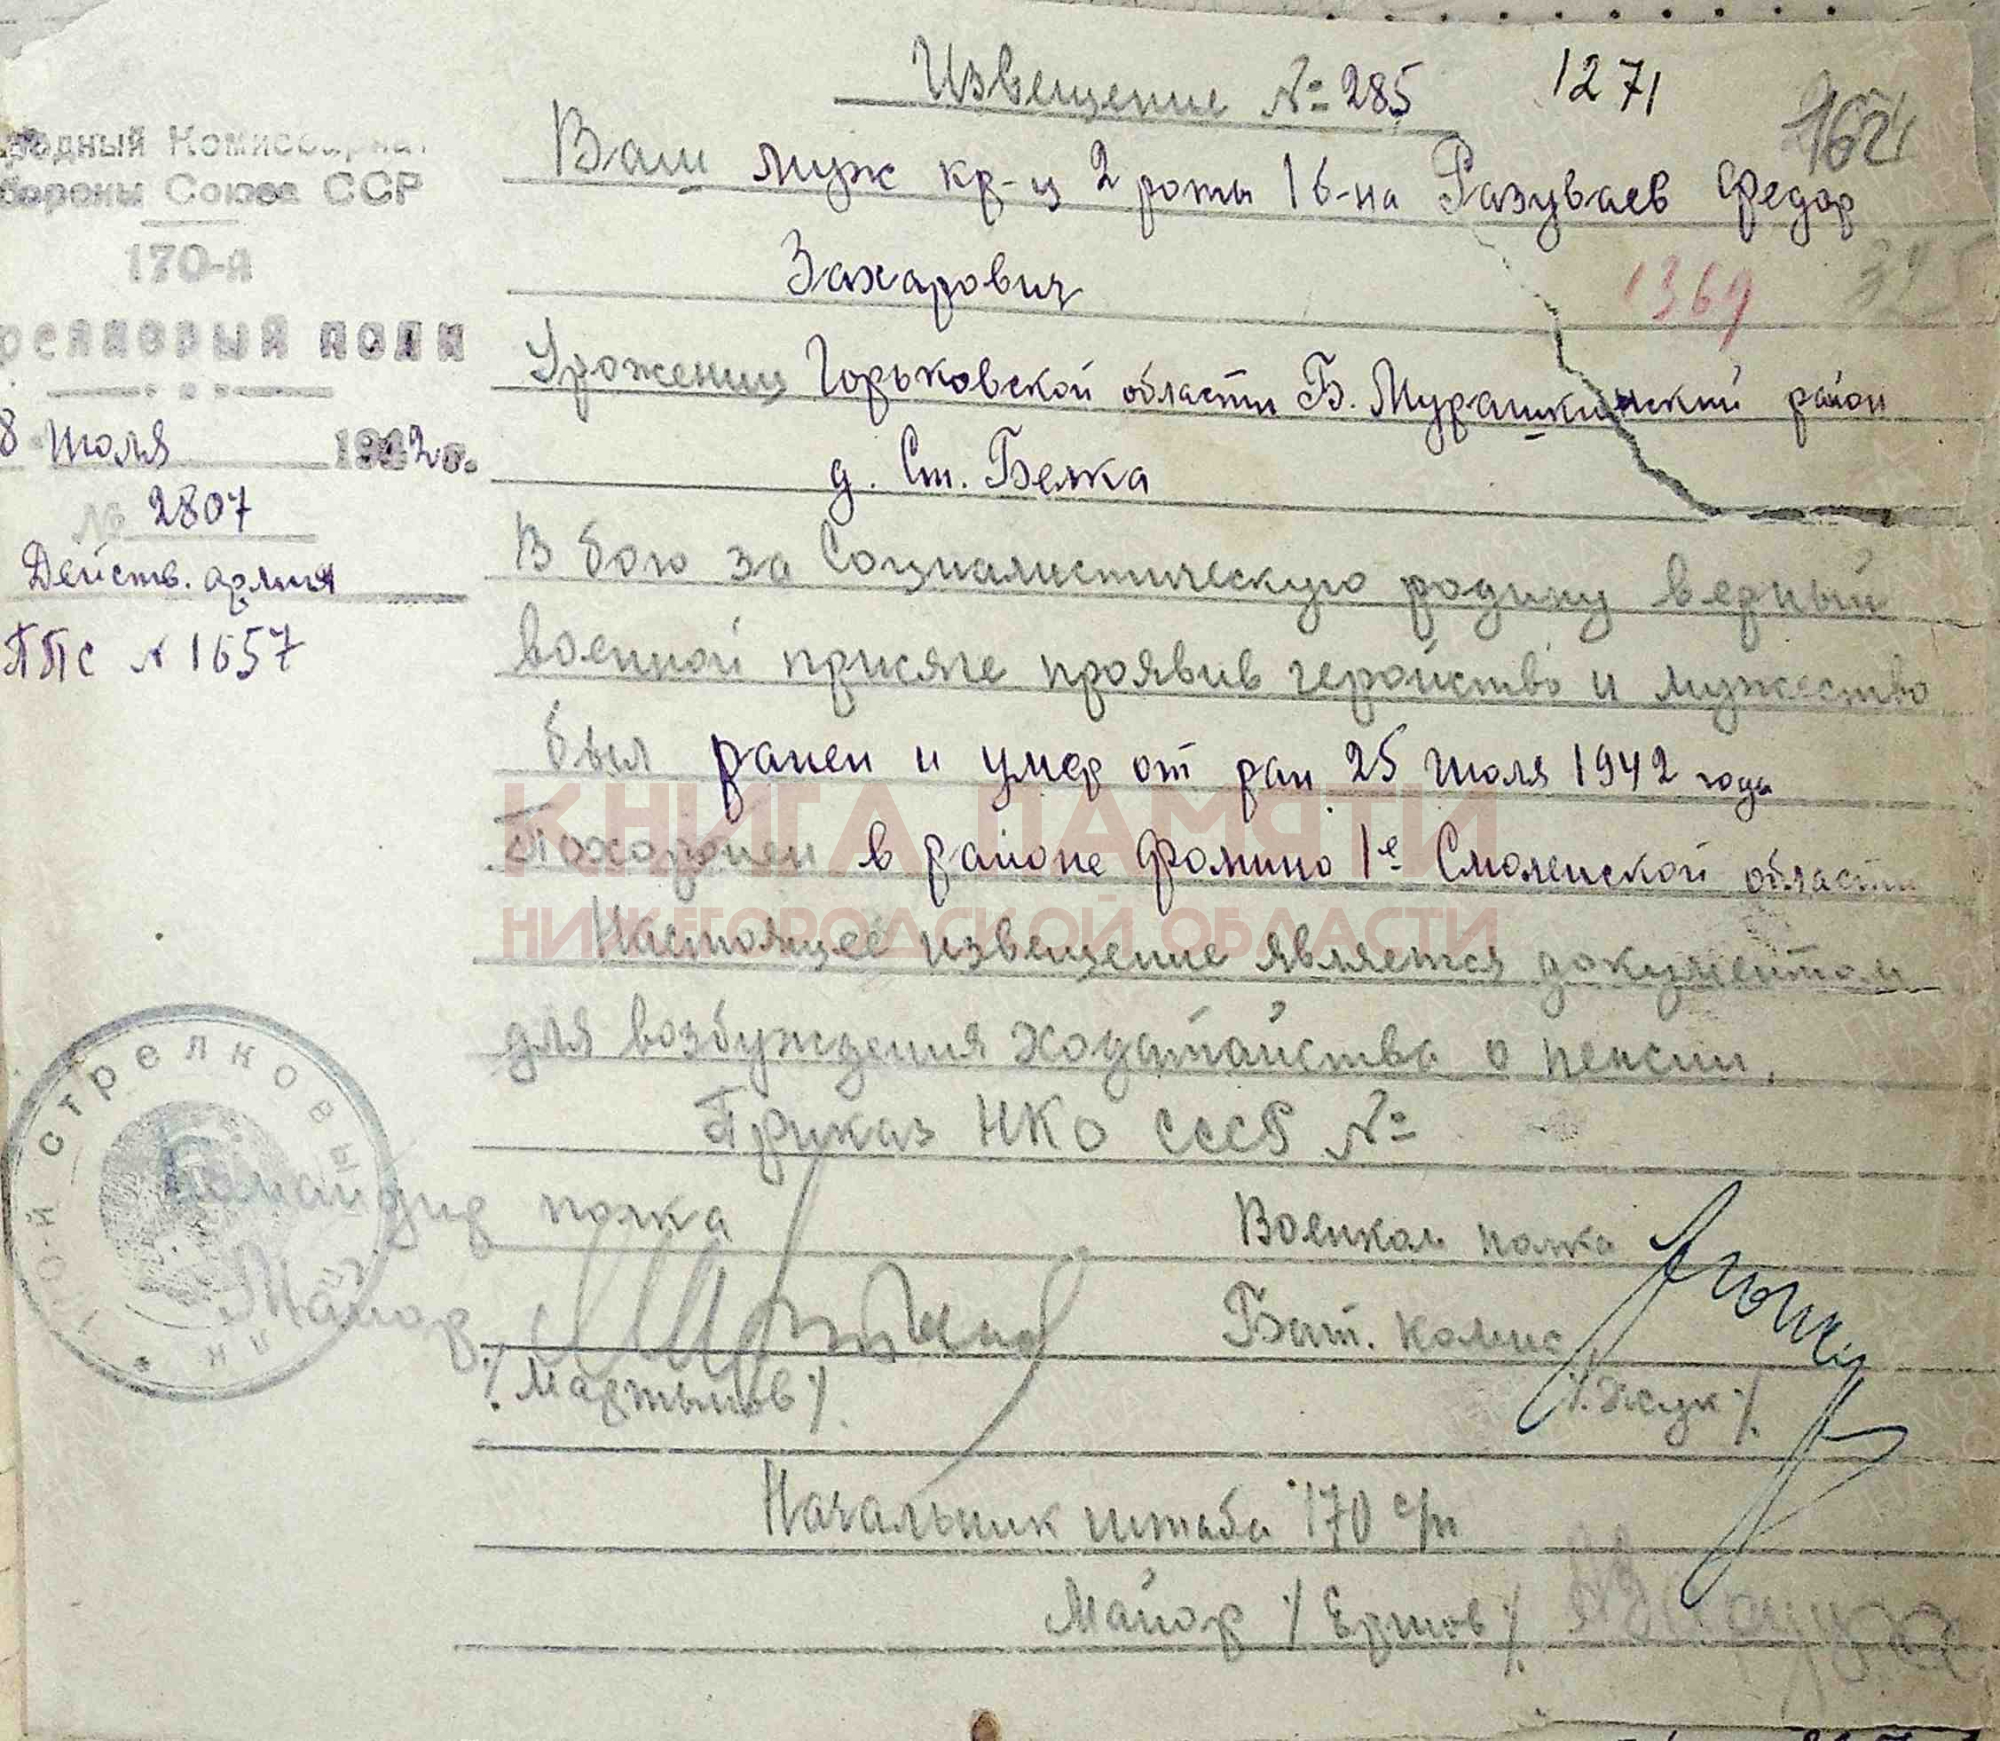 Извещение № 285 1271
Ваш муж кр-ц 2 роты 1 б-на Разуваев Федор
Захарович
1369
Уроженец Горьковской области Б. Мурашкинский район
д. Ст. Белка
В бою за Социалистическую родину верный
военной присяге проявив геройство и мужество
был ранен и умер от ран 25 июля 1942 года
Похоронен в районе Фомино 1е Смоленской области
Настоящее извещение является документом
для возбуждения ходатайства о пенсии.
Приказ НКО СССР №
Командир полка
Майор
/. Мартынов /.
Военком полка
Бат. комис
/. Жук /.
Начальник штаба 170 с/п
Майор /. Ершов /.
родный Комиссариат
бороны Союза ССР
170-й
релковый полк
8 июля 1942 г.
№ 2807
Действ. армия
ППС № 1657
й стрелковый
КНИГА ПАМЯТИ
НИЖЕГОРОДСКОЙ ОБЛАСТИ